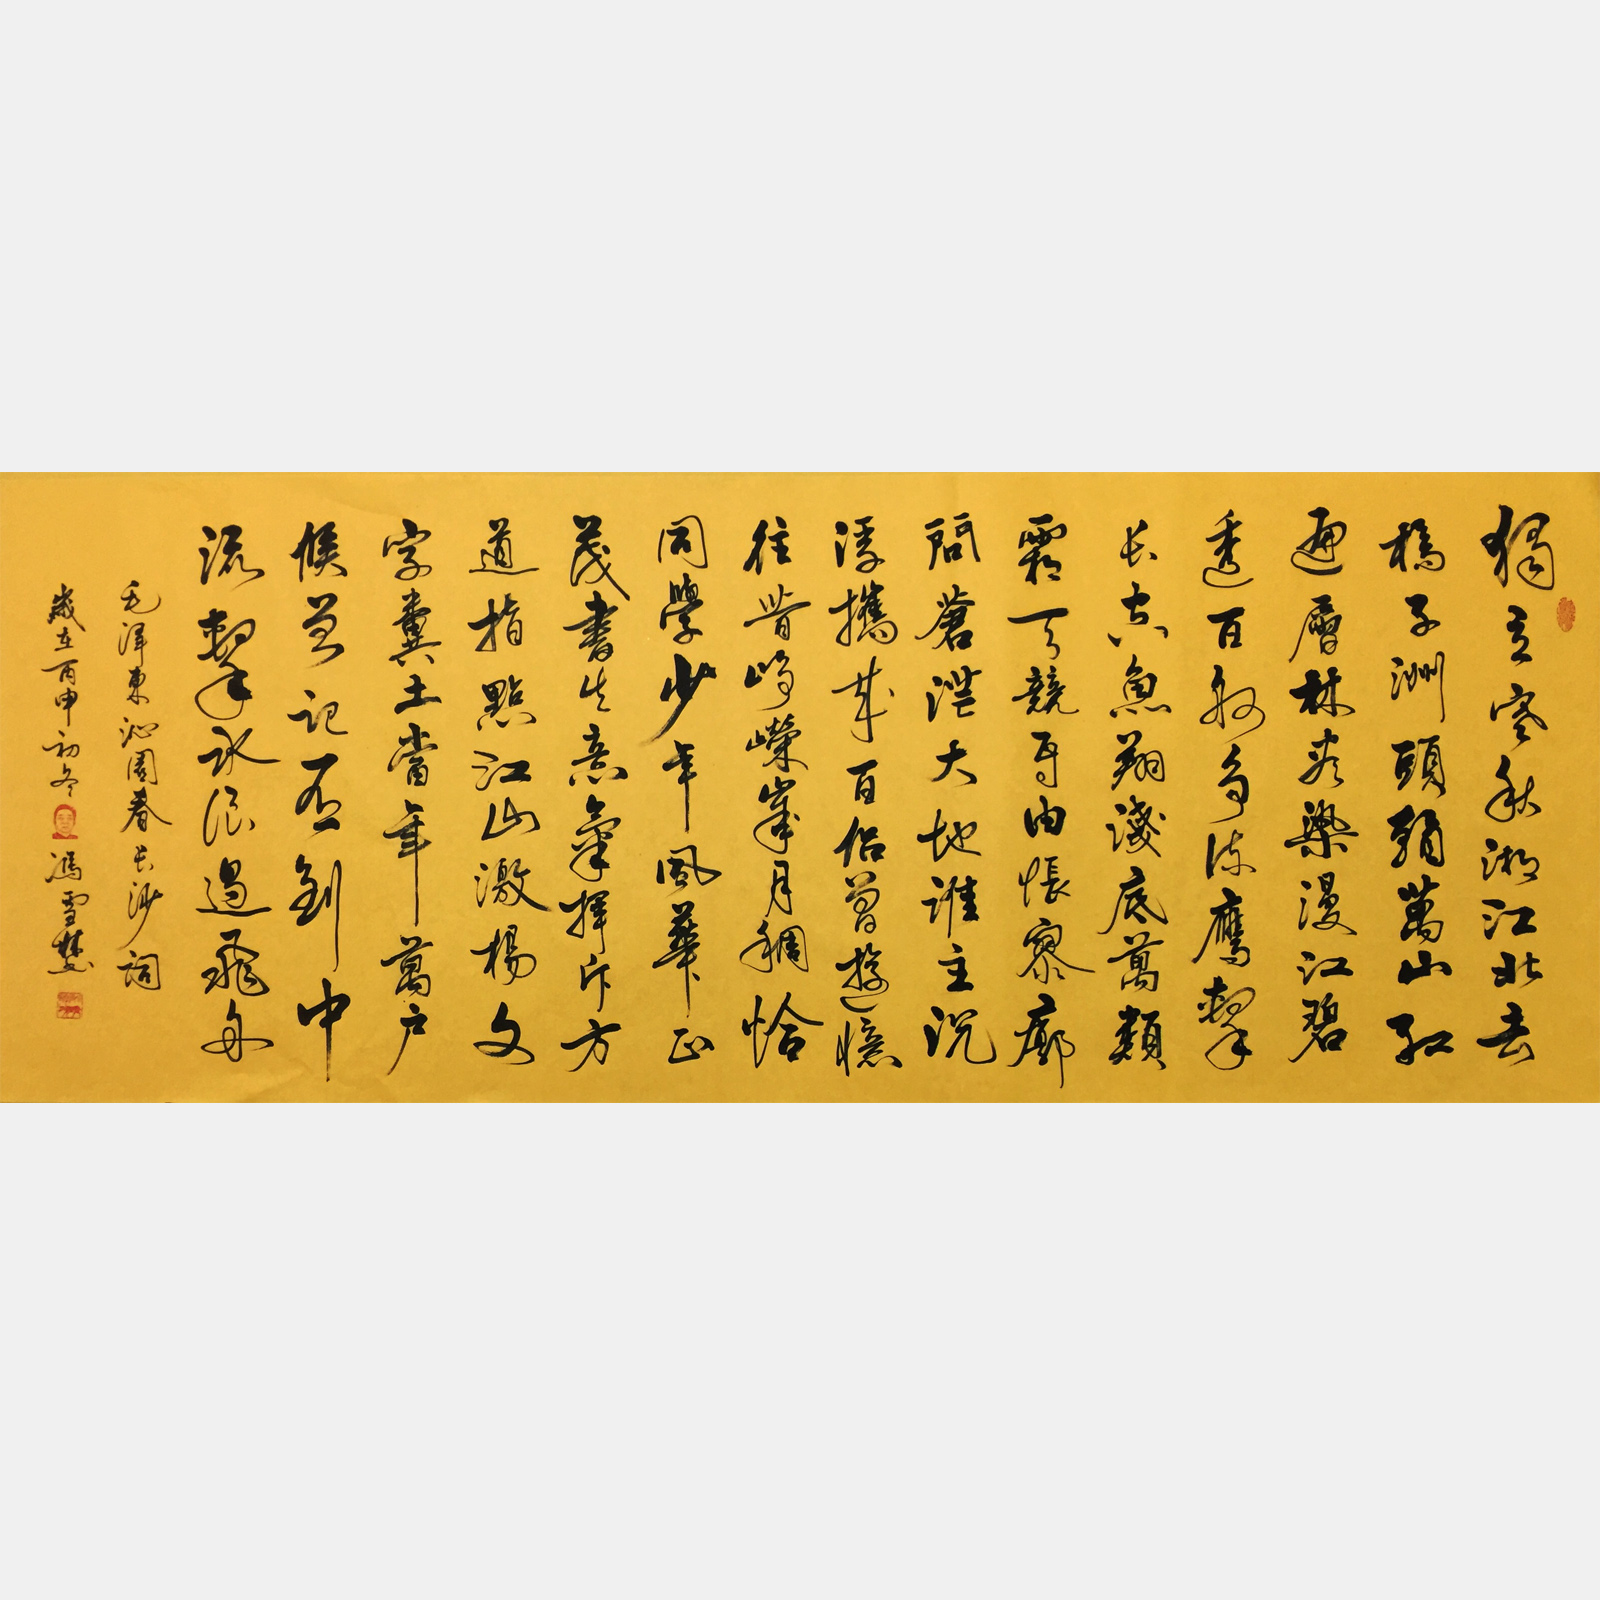 獨立寒秋湘江北去
橘子洲頭萬山紅
遍層林盡染漫江碧
透百舸爭流鷹擊
长空魚翔淺底萬類
霜天競自由悵寥廓
問蒼茫大地誰主沉
浮攜來百侶曾遊憶
往昔崢嶸歲月稠恰
同學少年風華正
茂書生意氣揮斥方
遒指點江山激楊文
字糞土當年萬户
候曾記否到中
流擊水浪遏飛舟
毛澤東沁園春长沙詞
歲在丙申初冬馮雪